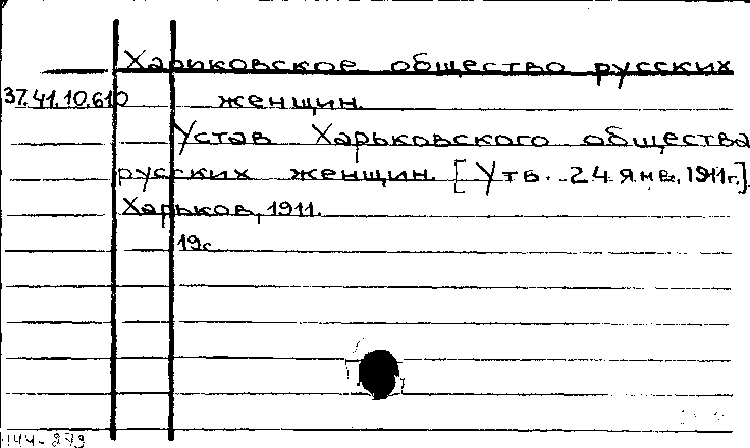 Харьковское общество русских
37.41.10.610 женщин.
Устав Харьковского общества
русских женщин. [Утв. 24 янв. 1911г.].
Харьков, 1911.
19с
144-273